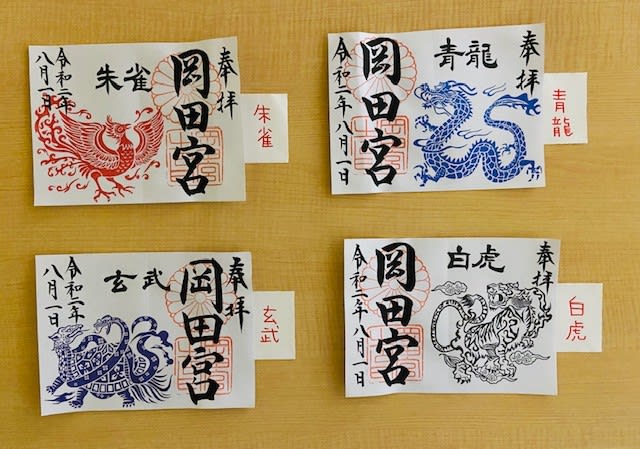 奉拝
岡田宮
朱雀
令和二年
八月一日
朱雀
奉拝
青龍
岡田宮
令和二年八月一日
青龍
奉拝
岡田宮
玄武
令和二年
八月一日
玄武
奉拝
白虎
岡田宮
令和二年八月一日
白虎